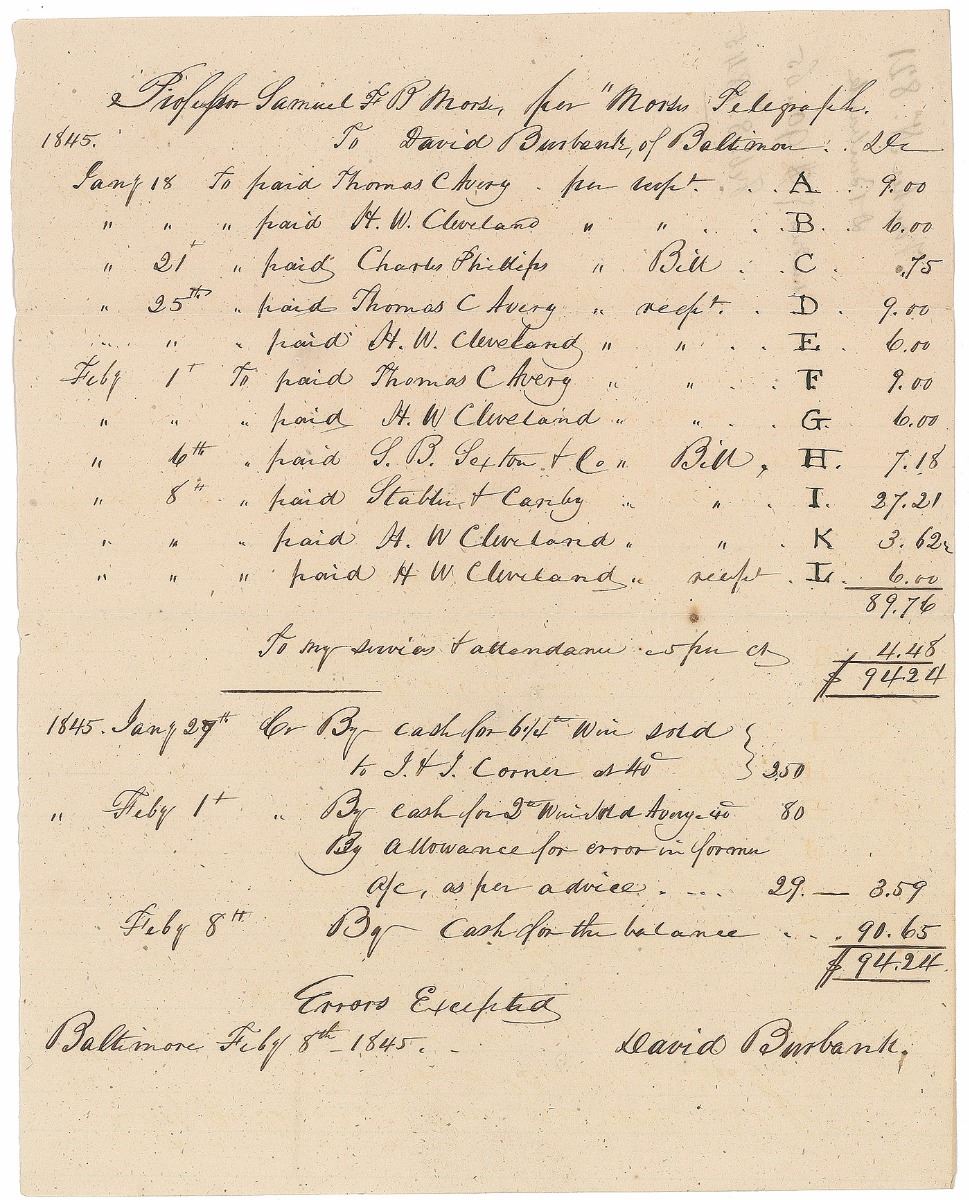 Professor Samuel F B Morse, per "Morse Telegraph.
1845. To David Burbank, of Baltimore . . Dr
Jany 18 To paid Thomas C Avery . per recpt. . . A . . 9.00
" " " paid H. W. Cleveland " " . . . B. . 6.00
" 21t " paid Charles Phillips " Bill . . C . .75
" 25th " paid Thomas C Avery " recpt. . . D . 9.00
" " " paid H. W. Cleveland " " . . E . 6.00
Feby 1t To paid Thomas C Avery " " . . F 9.00
" " " paid H. W Cleveland " " . . G. 6.00
" 6th " paid S. B. Sexton & Co " Bill, H. 7.18
" 8th " paid Stabler & Canby " " . I. 27.21
" " " paid H. W Cleveland " " . K 3.62
" " " paid H W Cleveland " recpt . L. 6.00
89.76
To my services & attendance 5 per ct 4.48
$ 94.24
1845. Jany 27th Cr By cash for 6 1/4 lb Wire sold
to J. & J. Corner at 40 2.50
" Feby 1t " By cash for 2 lb Wire sold Avery 40 80
By allowance for error in former
a/c, as per advice . . . . . 29. — 3.59
Feby 8th By Cash for the balance . . . 90.65
$ 94.24
Errors Excepted
Baltimore Feby 8th - 1845. . .
David Burbank.